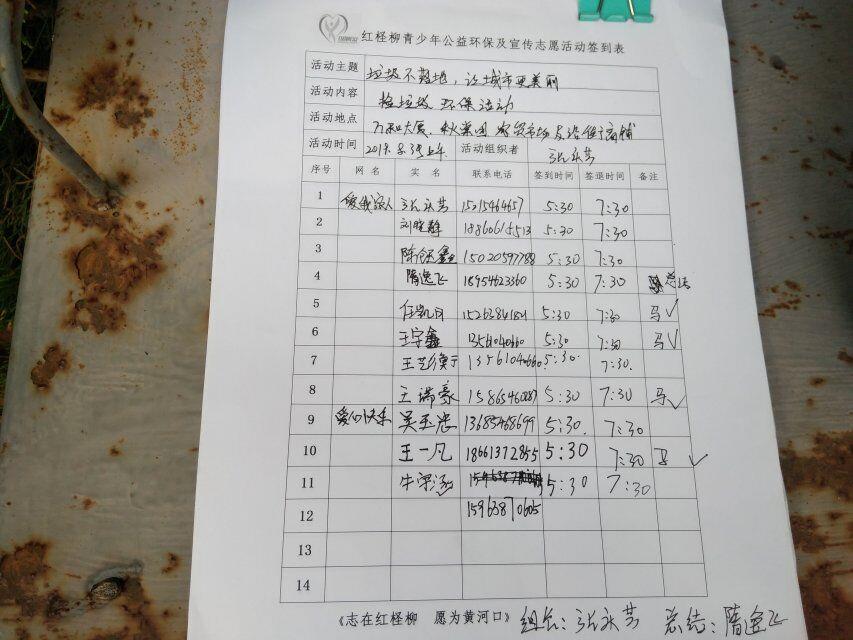 红柽柳青少年公益环保及宣传志愿活动签到表
活动主题 垃圾不落地,让城市更美丽
活动内容 捡垃圾 环保活动
活动地点 万和大厦、
活动时间 活动组织者 张永芳
序号 网名 实名 联系电话 签到时间 签退时间 备注
1 爱我家人 张永芳 15015464657 5:30 7:30
2 刘晓静 18860615513 5:30 7:30
3 陈钰鑫 15020597788 5:30 7:30
4 隋逸飞 18954623360 5:30 7:30 总结
5 任凯月 5:30 7:30 马✓
6 王宇鑫 5:30 7:30 马✓
7 王艺衡 5:30. 7:30.
8 王瑞豪 5:30 7:30 马✓
9 爱心快乐 吴玉忠 13685468699 5:30. 7:30
10 王一凡 18661372855 5:30 7:30 马 ✓
11 牛 5:30 7:30
12 15963870605
13
14
《志在红柽柳 愿为黄河口》 组长:张永芳 总结:隋逸飞